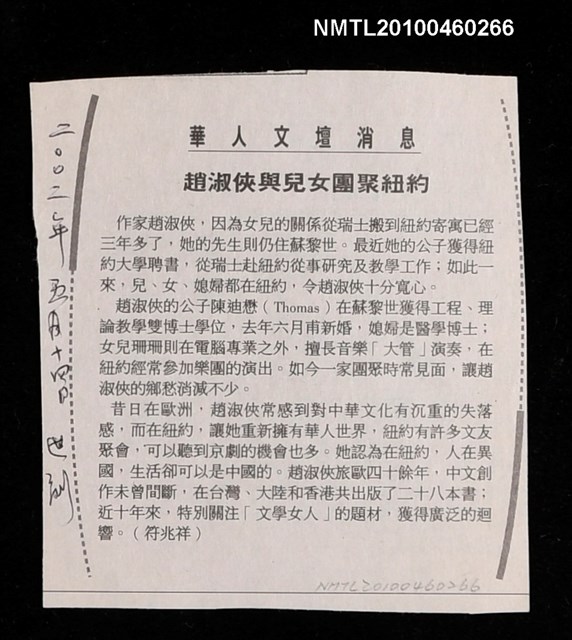 NMTL20100460266
華人文壇消息
趙淑俠與兒女團聚紐約
作家趙淑俠，因為女兒的關係從瑞士搬到紐約寄寓已經
三年多了，她的先生則仍住蘇黎世。最近她的公子獲得紐
約大學聘書，從瑞士赴紐約從事研究及教學工作；如此一
來，兒、女、媳婦都在紐約，令趙淑俠十分寬心。
趙淑俠的公子陳迪懋（Thomas）在蘇黎世獲得工程、理
論教學雙博士學位，去年六月甫新婚，媳婦是醫學博士；
女兒珊珊則在電腦專業之外，擅長音樂「大管」演奏，在
紐約經常參加樂團的演出。如今一家團聚時常見面，讓趙
淑俠的鄉愁消減不少。
昔日在歐洲，趙淑俠常感到對中華文化有沉重的失落
感，而在紐約，讓她重新擁有華人世界，紐約有許多文友
聚會，可以聽到京劇的機會也多。她認為在紐約，人在異
國，生活卻可以是中國的。趙淑俠旅歐四十餘年，中文創
作未曾間斷，在台灣、大陸和香港共出版了二十八本書；
近十年來，特別關注「文學女人」的題材，獲得廣泛的迴
響。（符兆祥）
二○○二年五月十四日 世副
NMTL20100460266